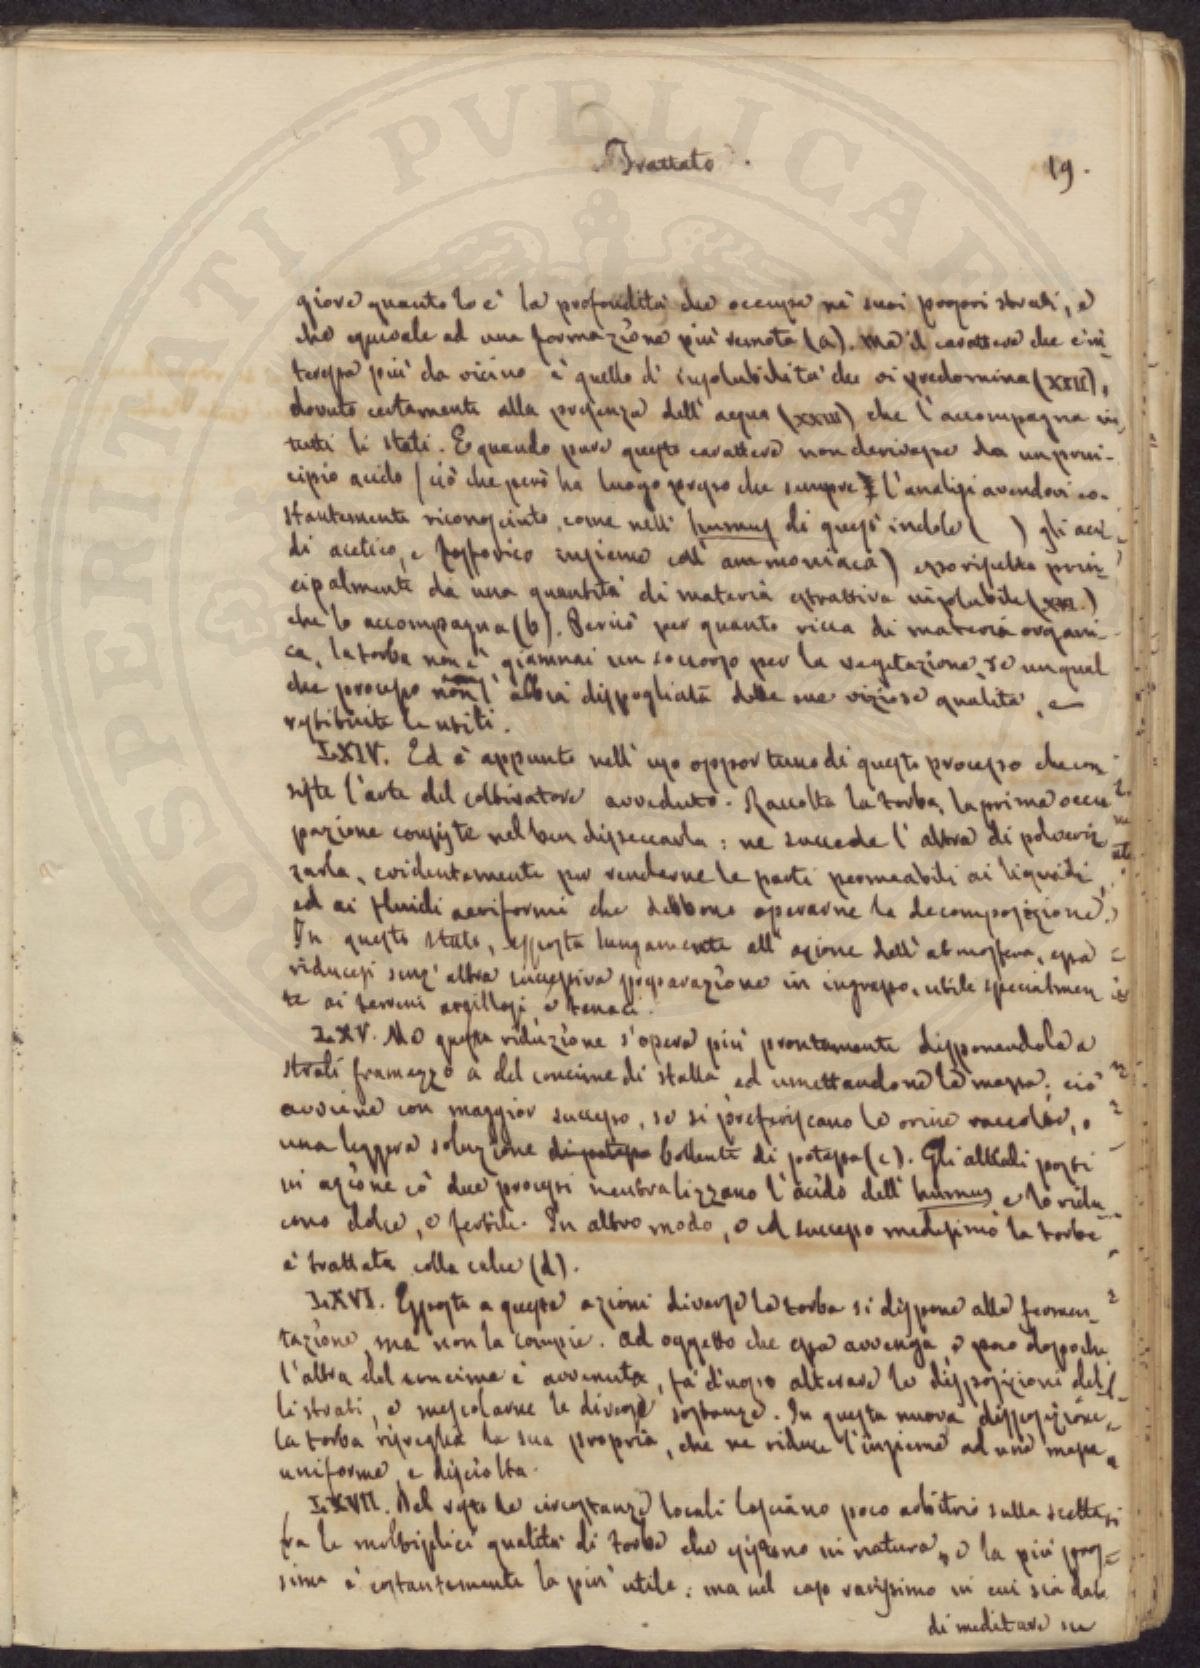 Trattato.
19.
giore quanto lo è la profondità che occupa ne' suoi propri strati, e
che equivale ad una formazione più remota (a). Ma il carattere che c'in-
teressa più da vicino è quello d'insolubilità che vi predomina (XXII),
dovuto certamente alla presenza dell'acqua (XXIII) che l'accompagna in
tutti li stati. E quando pure questo carattere non derivasse da un prin-
cipio acido (ciò che però ha luogo presso che sempre l'analisi avendovi co-
stantemente riconosciuto, come nell'humus di quest'indole ( ) gli aci-
di acetico, e fosforico insieme coll'ammoniaca) esso risulta prin-
cipalmente da una quantità di materia estrattiva insolubile (XXI.)
che lo accompagna (b). Perciò per quanto ricca di materia organi-
ca, la torba non è giammai un soccorso per la vegetazione, se un qual
che processo non l'abbia dispogliata delle sue viziose qualità, e
restituite le utili.
LXIV. Ed è appunto nell'uso opportuno di questo processo che con
siste l'arte del coltivatore avveduto. Raccolta la torba, la prima occu
pazione consiste nel ben disseccarla: ne succede l'altra di polveriz
zarla, evidentemente per renderne le parti permeabili ai liquidi,
ed ai fluidi aeriformi che debbono operarne la decomposizione.
In questo stato, esposta lungamente all'azione dell'atmosfera, essa
riducesi senz'altra successiva preparazione in ingrasso, utile specialmen
te ai terreni argillosi, e tenaci.
LXV. Ma questa riduzione s'opera più prontamente disponendola a
strati framezzo a del concime di stalla ed umettandone la massa: ciò
avviene con maggior successo, se si preferiscano le orine raccolte, o
una leggera soluzione di potassa bollente di potassa (c). Gli alkali posti
in azione co' due processi neutralizzano l'acido dell'humus e lo ridu-
cono dolce, e fertile. In altro modo, e ed successo medesimo la torba
è trattata colla calce (d).
LXVI. Esposta a queste azioni diverse la torba si dispone alla fermen-
tazione, ma non la compie. Ad oggetto che essa avvenga, e poco dopo che
l'altra del concime è avvenuta, fa d'uopo alterare la disposizione del-
li strati, e mescolarne le diverse sostanze. In questa nuova disposizione,
la torba risveglia la sua propria, che ne riduce l'insieme ad una massa
uniforme, e disciolta.
LXVII. Del resto le circostanze locali lasciano poco arbitrio sulla scelta
fra le moltiplici qualità di torbe che esistono in natura, e la più pros-
sima è costantemente la più utile: ma nel caso rarissimo in cui sia dato
di meditare su